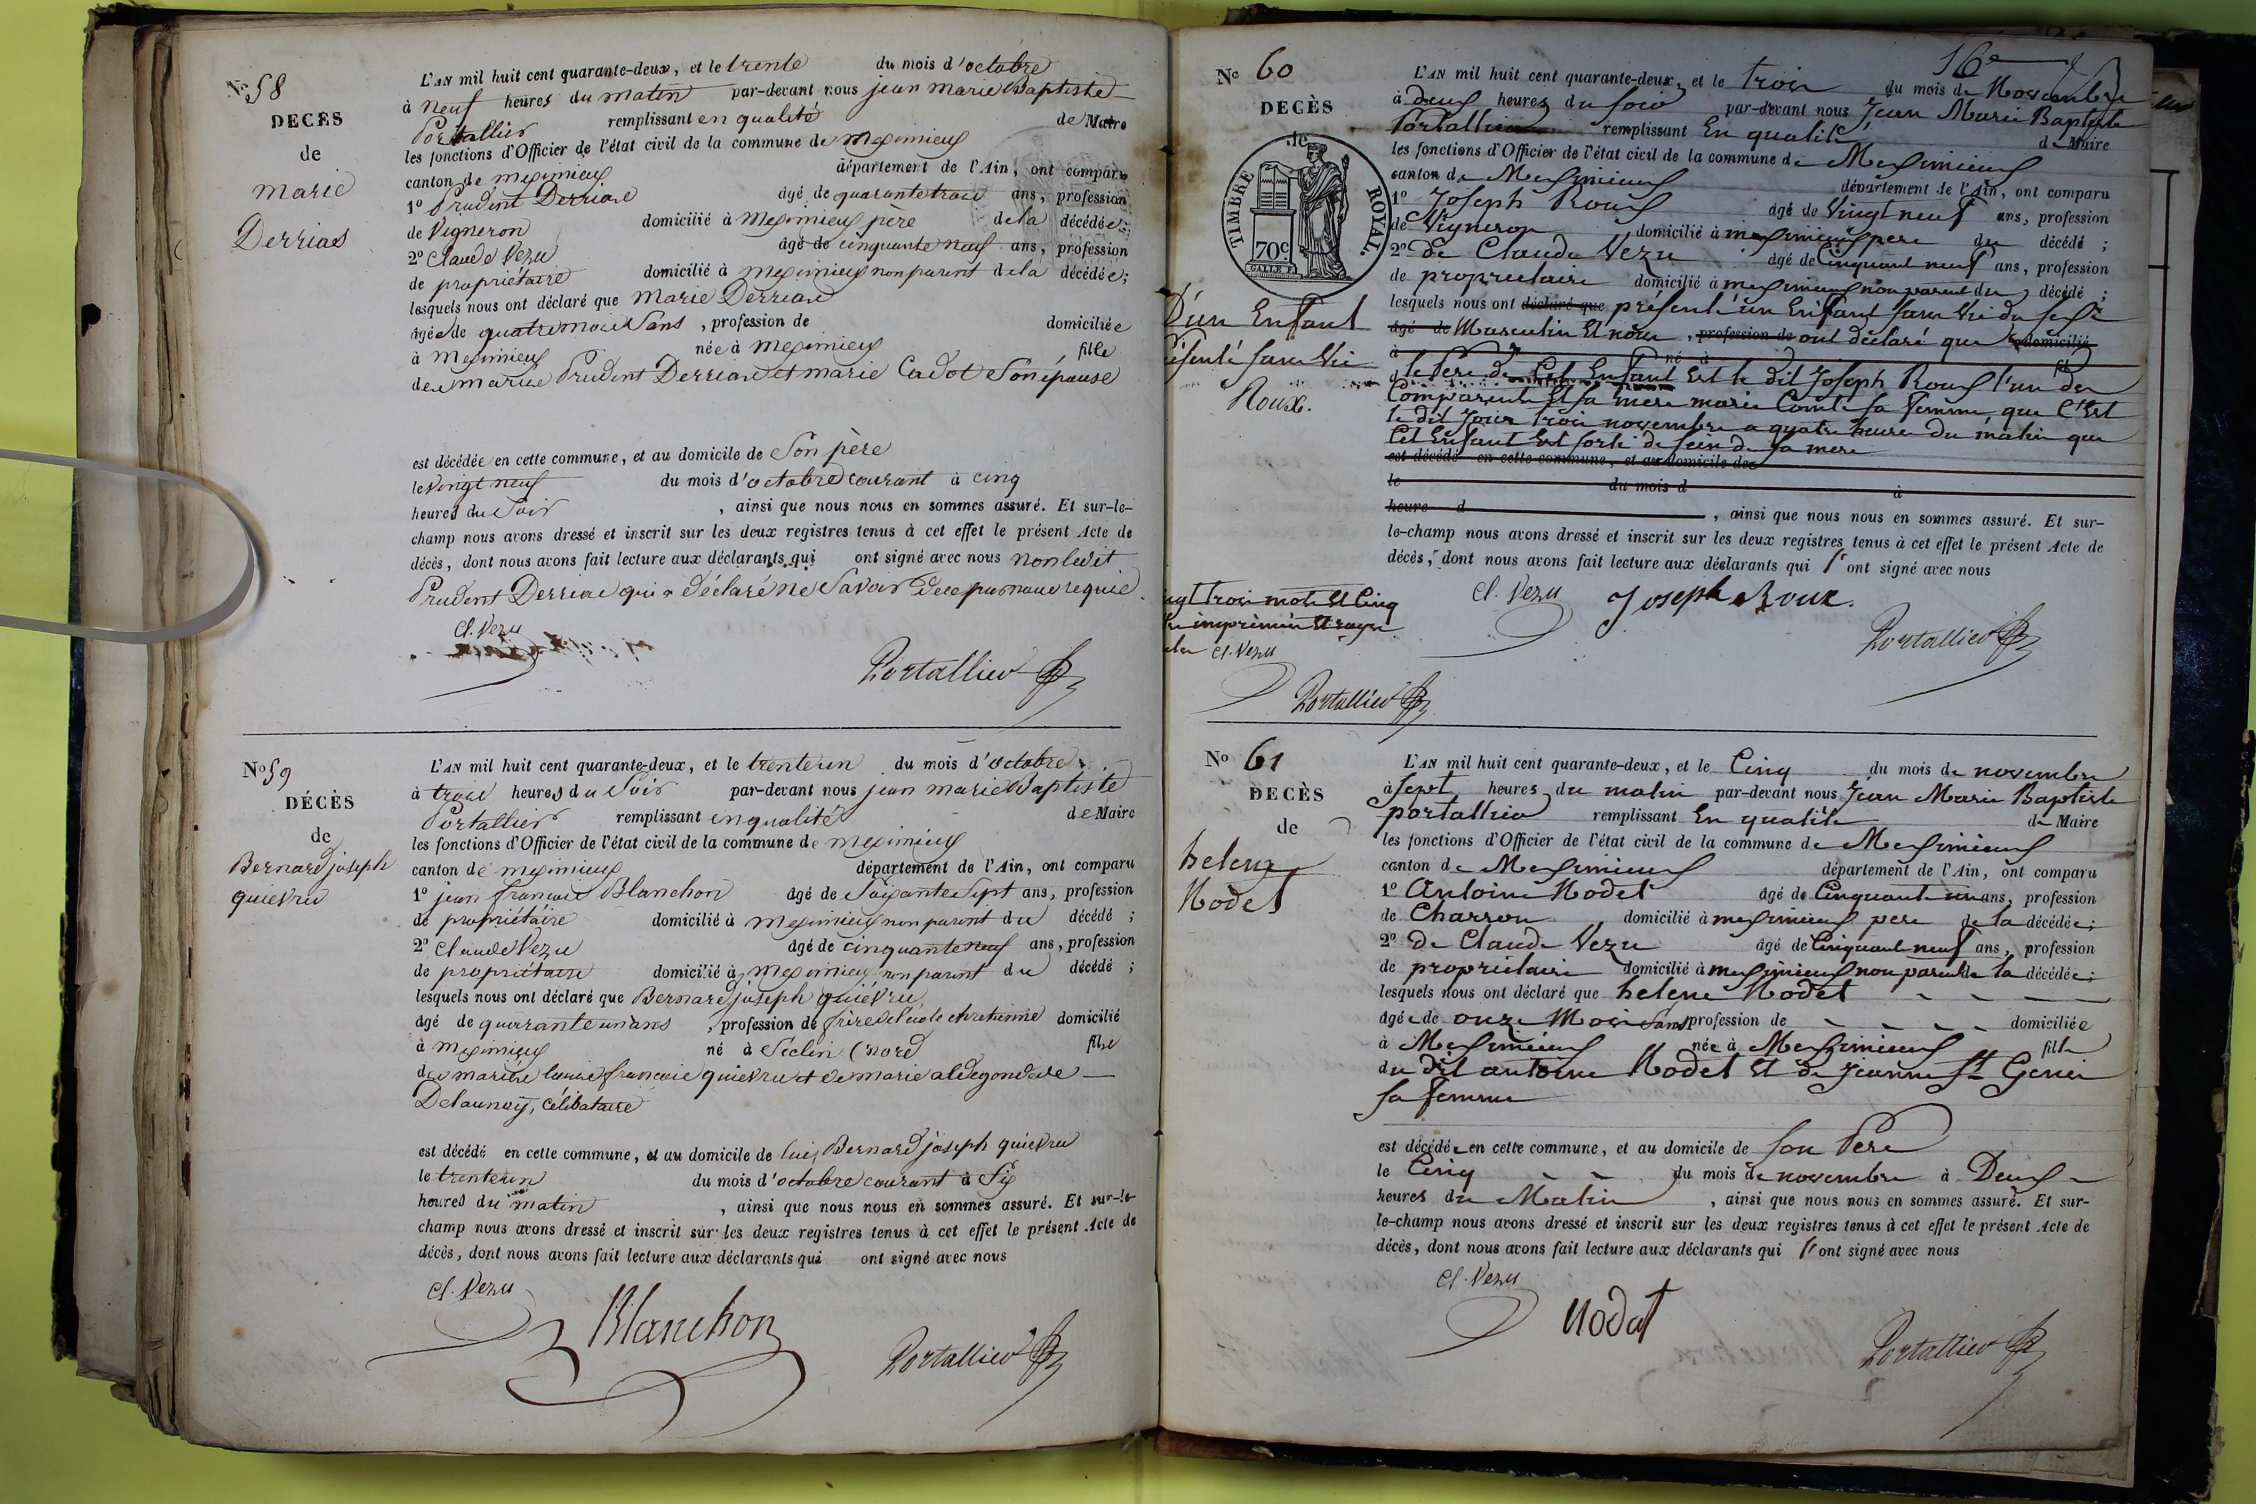 No 58
DECÈS
de
marie
Derrias
L'AN mil huit cent quarante-deux, et le trente du mois d'octobre
à neuf heures du matin par-devant nous jean marie Baptiste
Portallier remplissant en qualité de Maire
les fonctions d'Officier de l'état civil de la commune de meximieux
canton de meximieux département de l'Ain, ont comparu
1o Prudent Derrias âgé de quarante trois ans, profession
de Vigneron domicilié à meximieux père de la décédée;
2o Claude Vezu âgé de cinquante neuf ans, profession
de propriétaire domicilié à meximieux non parent de la décédée;
lesquels nous ont déclaré que marie Derrias
âgée de quatre mois Sans , profession de domiciliée
à meximieux née à meximieux fille
de Prudent Derrias et marie Cadot Son épouse
est décédée en cette commune, et au domicile de Son père
le vingt neuf du mois d'octobre courant à cinq
heures du Soir , ainsi que nous nous en sommes assuré. Et sur-le-
champ nous avons dressé et inscrit sur les deux registres tenus à cet effet le présent Acte de
décès, dont nous avons fait lecture aux déclarants qui ont signé avec nous non ledit
Prudent Derrias qui a déclaré ne Savoir de ce par nous requis.
Cl. Vezu
Portallier
No 59
DÉCÈS
de
Bernard joseph
quievru
L'AN mil huit cent quarante-deux, et le trente un du mois d'octobre
à trois heures du Soir par-devant nous jean marie Baptiste
Portallier remplissant en qualité de Maire
les fonctions d'Officier de l'état civil de la commune de meximieux
canton de meximieux département de l'Ain, ont comparu
1o jean françois Blanchon âgé de Soixante Sept ans, profession
de propriétaire domicilié à meximieux non parent du décédé ;
2o Claude Vezu âgé de cinquante neuf ans, profession
de propriétaire domicilié à meximieux non parent du décédé ;
lesquels nous ont déclaré que Bernard joseph quiévru
âgé de quarante un ans , profession de frère de l'école chretienne domicilié
à meximieux né à Seclin (nord fils
de françois quievru et de marie aldegonde
Delaunoy, célibataire
est décédé en cette commune, et au domicile de lui, Bernard joseph quievru
le trente un du mois d'octobre courant à Six
heures du matin , ainsi que nous nous en sommes assuré. Et sur-le-
champ nous avons dressé et inscrit sur les deux registres tenus à cet effet le présent Acte de
décès, dont nous avons fait lecture aux déclarants qui ont signé avec nous
Cl. Vezu
Blanchon
Portallier
16e
No 60
DECÈS
de
TIMBRE ROYAL.
70c.
D'un Enfant
présenté sans Vie
Roux.
L'AN mil huit cent quarante-deux, et le trois du mois de Novembre
à deux heures du soir par-devant nous Jean Marie Baptiste
Portallier remplissant En qualité de Maire
les fonctions d'Officier de l'état civil de la commune de Meximieux
canton de Meximieux département de l'Ain, ont comparu
1o Joseph Roux âgé de Vingt neuf ans, profession
de Vigneron domicilié à meximieux pere du décédé ;
2o de Claude Vezu âgé de Cinquante neuf ans, profession
de proprietaire domicilié à meximieux non parent du décédé ;
lesquels nous ont déclaré que présenté un Enfant sans Vie du sexe
âgé de Masculin Et nous , profession de ont déclaré que domicilié
à né à fil
le Pere de Cet Enfant Est le dit Joseph Roux l'un des
Comparants Et sa mere marie Comte sa femme, que C'Est
le dit Jour trois novembre a quatre heures du matin que
Cet Enfant Est sorti du sein de sa mere
est décédé en cette commune, et au domicile de
le du mois d à
heure d , ainsi que nous nous en sommes assuré. Et sur-
le-champ nous avons dressé et inscrit sur les deux registres tenus à cet effet le présent Acte de
décès, dont nous avons fait lecture aux déclarants qui l'ont signé avec nous
Cl. Vezu Joseph Roux.
Portallier
trois mots Et Cinq
imprimés
Cl. Vezu
Portallier
No 61
DECÈS
de
helene
Nodet
L'AN mil huit cent quarante-deux, et le Cinq du mois de novembre
à Sept heures du matin par-devant nous Jean Marie Baptiste
portallier remplissant En qualité de Maire
les fonctions d'Officier de l'état civil de la commune de Meximieux
canton de Meximieux département de l'Ain, ont comparu
1o Antoine Nodet âgé de Cinquante un ans, profession
de Charron domicilié à meximieux pere de la décédée;
2o de Claude Vezu âgé de Cinquante neuf ans, profession
de proprietaire domicilié à meximieux non parent de la décédée;
lesquels nous ont déclaré que helene Nodet
âgée de onze Mois Sans profession de domiciliée
à Meximieux née à Meximieux fille
du dit antoine Nodet Et de Jeanne St Genis
sa femme
est décédée en cette commune, et au domicile de son Pere
le Cinq du mois de novembre à Deux
heures du Matin , ainsi que nous nous en sommes assuré. Et sur-
le-champ nous avons dressé et inscrit sur les deux registres tenus à cet effet le présent Acte de
décès, dont nous avons fait lecture aux déclarants qui l'ont signé avec nous
Cl. Vezu
Nodet
Portallier